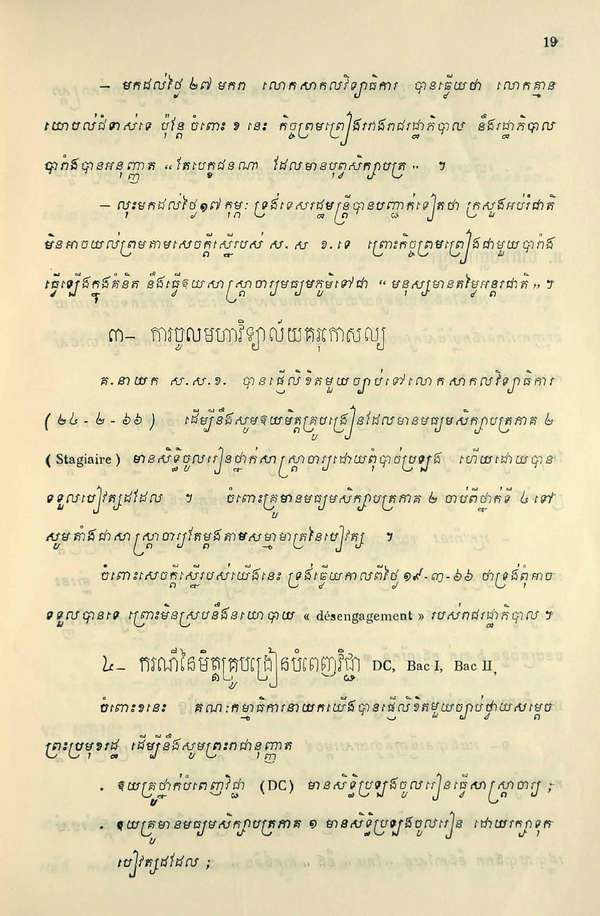 19
– មកដល់ថ្ងៃ ២៧ មករា លោកសាកលវិទ្យាធិការ បានឆ្លើយថា លោកគ្មាន
យោបល់ជំទាស់ទេ ប៉ុន្តែ ចំពោះ ១ នេះ កិច្ចព្រមព្រៀងរវាងរាជរដ្ឋាភិបាល នឹងរដ្ឋាភិបាល
បារាំងបានអនុញ្ញាត “ តែបេក្ខជនណា ដែលមានបុព្វសិក្សាបត្រ „ ។
– លុះមកដល់ថ្ងៃ ១៧ កុម្ភៈ ទ្រង់ទេសរដ្ឋមន្ត្រីបានបញ្ជាក់ទៀតថា ក្រសួងអប់រំជាតិ
មិនអាចយល់ព្រមតាមសេចក្ដីស្នើរបស់ ស. ស ខ. ទេ ព្រោះកិច្ចព្រមព្រៀងជាមួយបារាំង
ធ្វើឡើងក្នុងគំនិត នឹងធ្វើឱយសាស្ត្រាចារ្យមធ្យមភូមិទៅជា “ មនុស្សមានតម្លៃអន្តរជាតិ „ ។
៣– ការចូលមហាវិទ្យាល័យគរុកោសល្យ
គ. នាយក ស. ស. ខ. បានផ្ញើលិខិតមួយច្បាប់ទៅលោកសាកលវិទ្យាធិការ
( ២៤ - ២ - ៦៦ ) ដើម្បីនឹងសូមឱយមិត្តគ្រូបង្រៀនដែលមានមធ្យមសិក្សាបត្រភាគ ២
( Stagiaire ) មានសិទ្ធិចូលរៀនថ្នាក់សាស្ត្រាចារ្យដោយពុំបាច់ប្រឡង ហើយដោយបាន
ទទួលបៀវត្សដដែល ។ ចំពោះគ្រូមានមធ្យមសិក្សាបត្រភាគ ២ ចាប់ពីថ្នាក់ទី ៤ ទៅ
សូមតាំងជាសាស្ត្រាចារ្យតែម្ដងតាមសម្មាមាត្រនៃបៀវត្ស ។
ចំពោះសេចក្ដីស្នើរបស់យើងនេះ ទ្រង់ឆ្លើយកាលពីថ្ងៃ ១៩-៣-៦៦ ថាទ្រង់ពុំអាច
ទទួលបានទេ ព្រោះមិនស្របនឹងនយោបាយ « désengagement » របស់រាជរដ្ឋាភិបាល ។
៤– ករណីនៃមិត្តគ្រូបង្រៀនបំពេញវិជ្ជា DC, Bac I, Bac II,
ចំពោះខនេះ គណៈកម្មាធិការនាយកយើងបានផ្ញើលិខិតមួយច្បាប់ថ្វាយសម្ដេច
ព្រះប្រមុខរដ្ឋ ដើម្បីនឹងសូមព្រះរាជានុញ្ញាត
. ឱយគ្រូថ្នាក់បំពេញវិជ្ជា (DC) មានសិទ្ធិប្រឡងចូលរៀនធ្វើសាស្ត្រាចារ្យ ;
. ឱយគ្រូមានមធ្យមសិក្សាបត្រភាគ ១ មានសិទ្ធិប្រឡងចូលរៀន ដោយរក្សាទុក
បៀវត្សដដែល ;